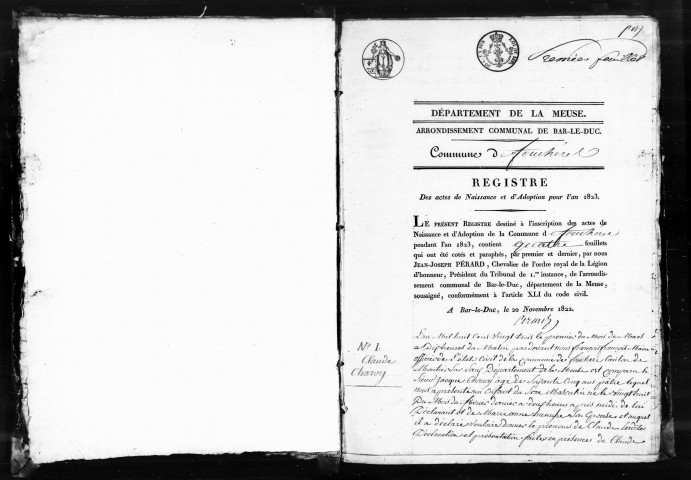 Premier feuillet
DÉPARTEMENT DE LA MEUSE.
ARRONDISSEMENT COMMUNAL DE BAR-LE-DUC.
Commune d
REGISTRE
Des actes de Naissance et d'Adoption pour l'an 1823.
LE PRÉSENT REGISTRE destiné à l'inscription des actes de
Naissance et d'Adoption de la Commune d
pendant l'an 1823, contient quatre feuillets
qui ont été cotés et paraphés, par premier et dernier, par nous
JEAN-JOSEPH PÉRARD, Chevalier de l'ordre royal de la Légion
d'honneur, Président du Tribunal de 1.ere instance, de l'arrondis-
sement communal de Bar-le-Duc, département de la Meuse,
soussigné, conformément à l'article XLI du code civil.
A Bar-le-Duc, le 20 Novembre 1822.
N° 1
Claude
Charoy
L'an Mil huit Cent Vingt trois le premier du Mois de Mars
a Dix heures du Matin pardevant nous françois
officier de l'état Civil de la Commune de Canton de
Département de la Meuse est comparu le
Sieur Jacque Charoy âgé de Soixante Cinq ans lequel
nous a présenté un Enfant du Sexe Masculin né le vingt huit
Du Mois de février dernier a heures après midi de lui
Déclarant et de Marianne son Epouse et auquel
il a déclaré vouloir donner le prénom de Claude lesdites
Déclaration et présentation faites en présence de Claude